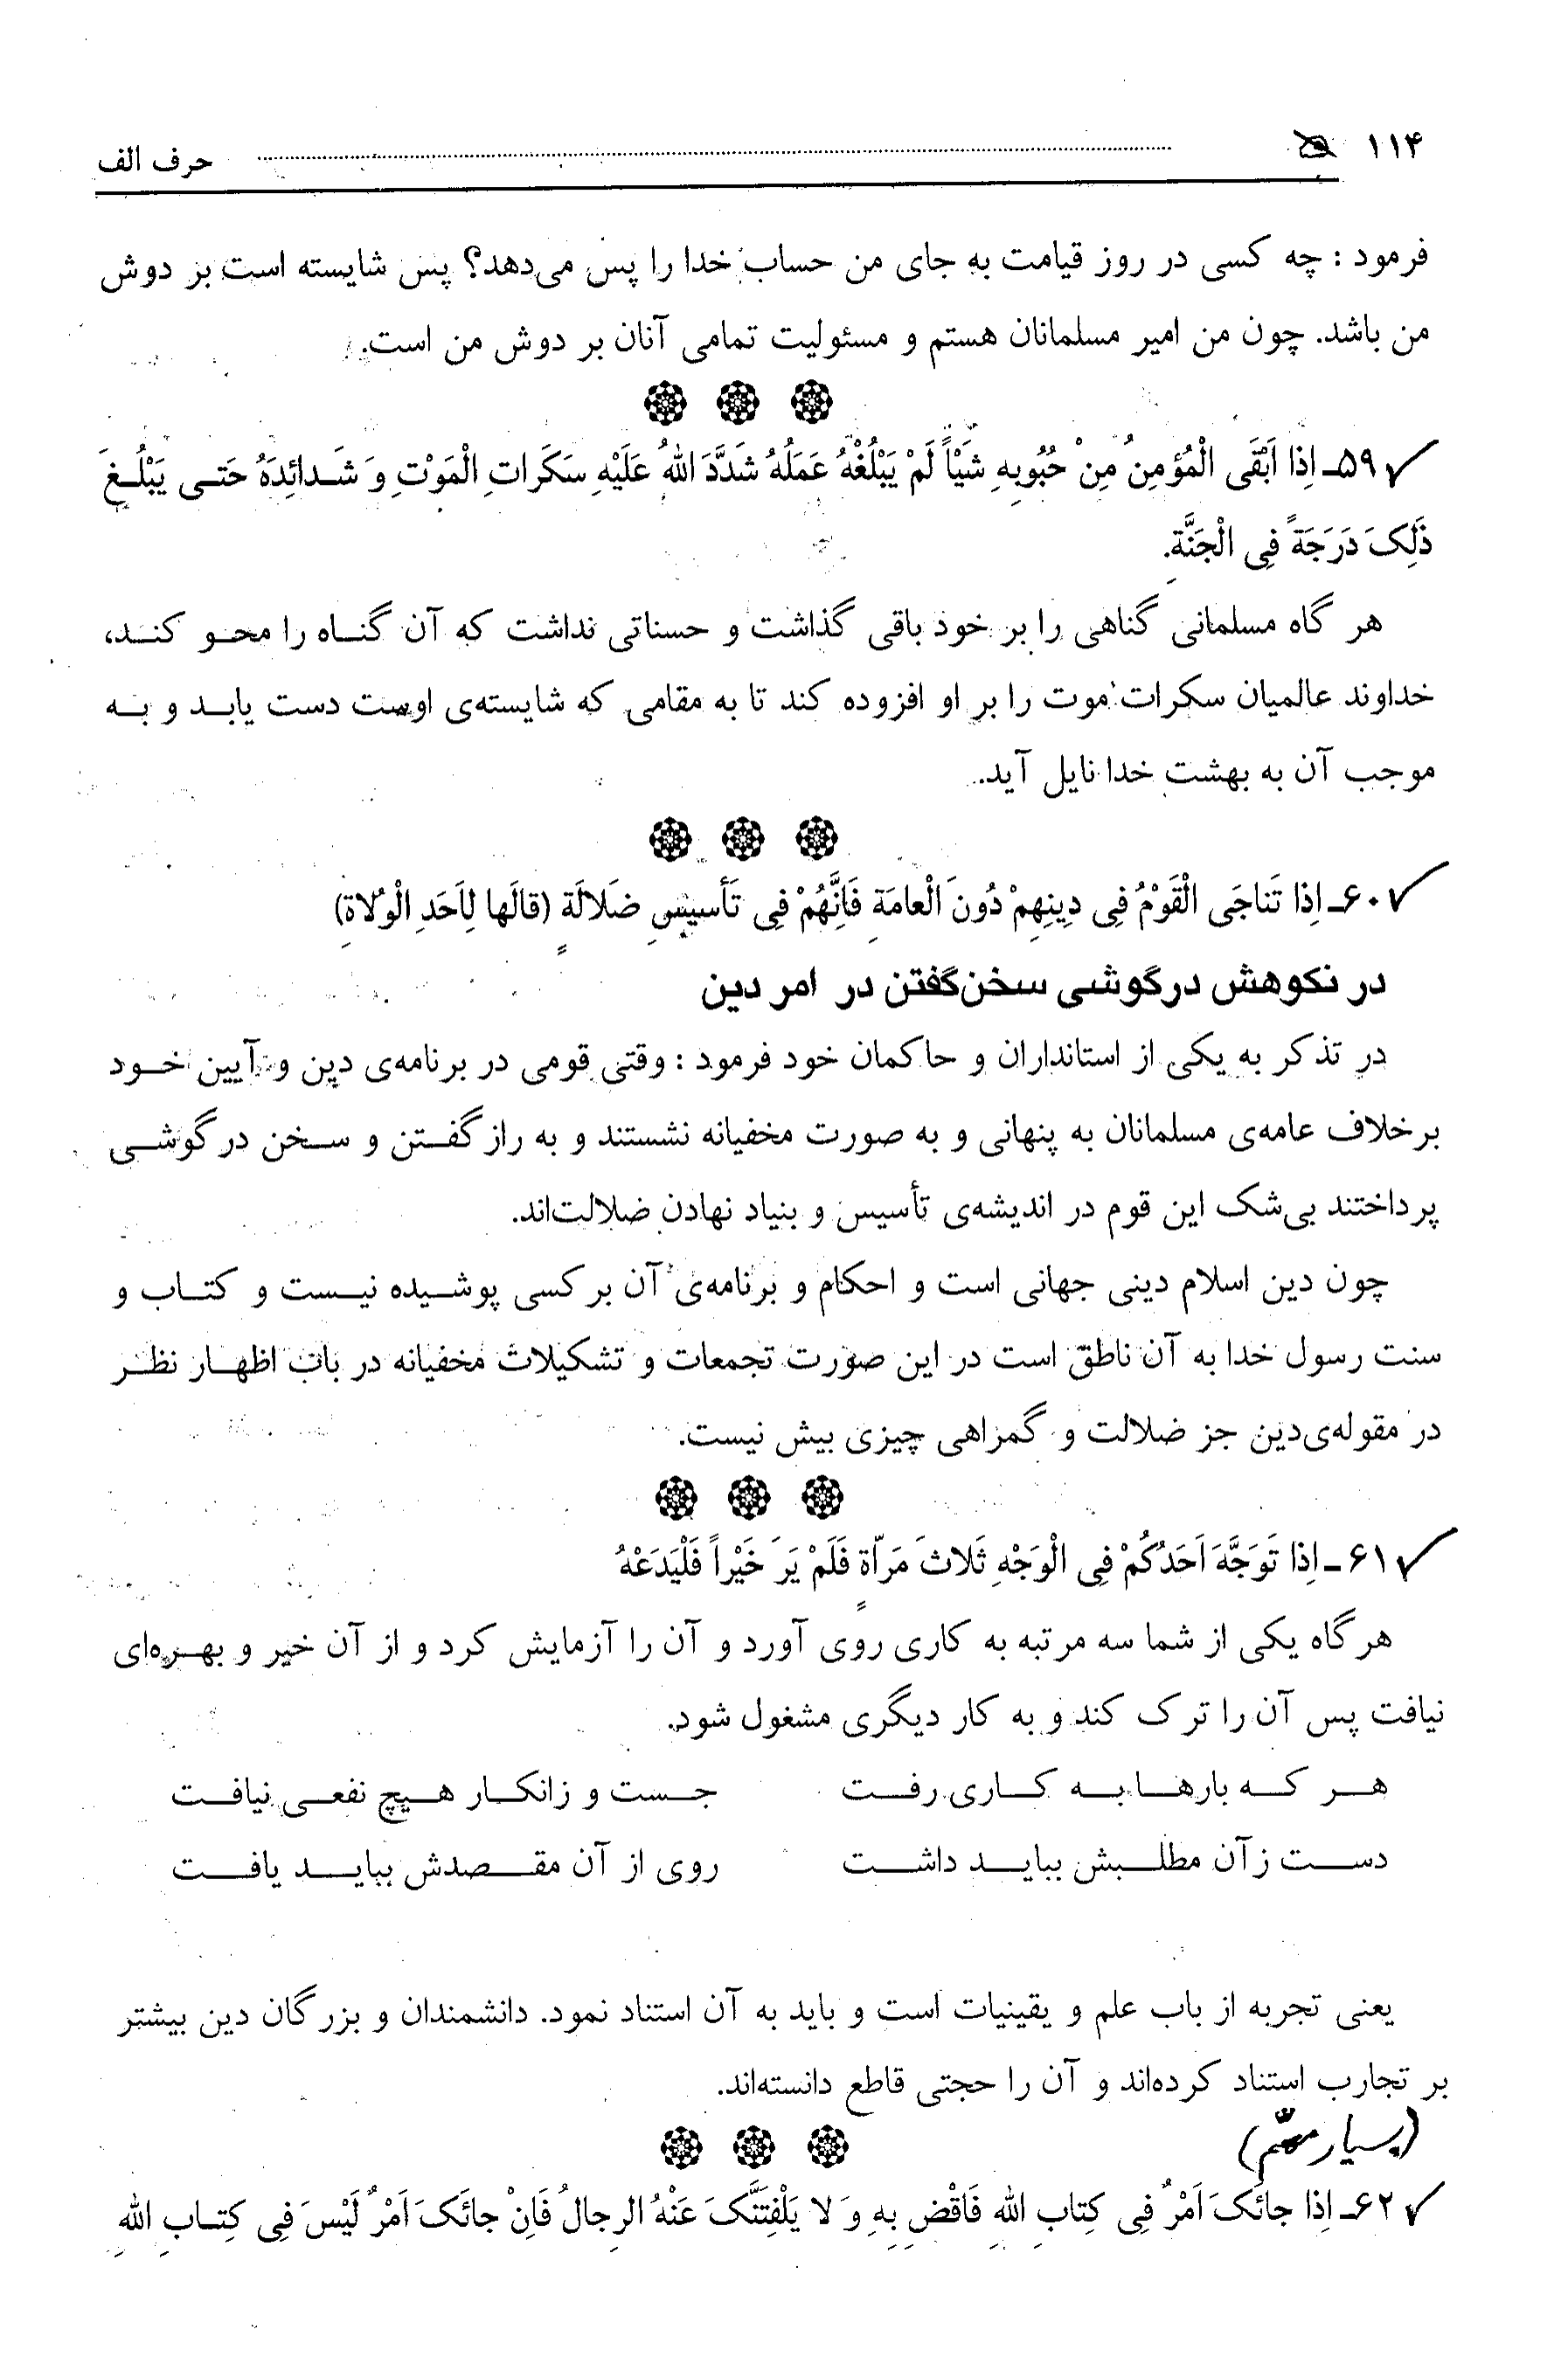 ۱۱۴ حرف الف
فرمود : چه کسی در روز قیامت به جای من حساب خدا را پس می‌دهد؟ پس شایسته است بر دوش
من باشد. چون من امیر مسلمانان هستم و مسئولیت تمامی آنان بر دوش من است.
۵۹ـ اِذا اَبْقَی الْمُؤمِنُ مِنْ حُبُوبِهِ شَیْاً لَمْ یَبْلُغْهُ عَمَلُهُ شَدَّدَ اللهُ عَلَیْهِ سَکَراتِ الْمَوْتِ وَ شَـدائِدَهُ حَتـی یَبْلُـغَ
ذَلِکَ دَرَجَةً فِی الْجَنَّةِ.
هر گاه مسلمانی گناهی را بر خود باقی گذاشت و حسناتی نداشت که آن گنـاه را محـو کنـد،
خداوند عالمیان سکرات موت را بر او افزوده کند تا به مقامی که شایسته‌ی اوست دست یابـد و بـه
موجب آن به بهشت خدا نایل آید.
۶۰ـ اِذا تَناجَی الْقَوْمُ فِی دِینِهِمْ دُونَ الْعامَةِ فَاِنَّهُمْ فِی تَأسیسِ ضَلالَةٍ (قالَها لِاَحَدِ الْوُلاةِ)
در نکوهش درگوشی سخن‌گفتن در امر دین
در تذکر به یکی از استانداران و حاکمان خود فرمود : وقتی قومی در برنامه‌ی دین و آیین خـود
برخلاف عامه‌ی مسلمانان به پنهانی و به صورت مخفیانه نشستند و به راز گفـتن و سـخن در گوشـی
پرداختند بی‌شک این قوم در اندیشه‌ی تأسیس و بنیاد نهادن ضلالت‌اند.
چون دین اسلام دینی جهانی است و احکام و برنامه‌ی آن بر کسی پوشـیده نیـست و کتـاب و
سنت رسول خدا به آن ناطق است در این صورت تجمعات و تشکیلات مخفیانه در باب اظهـار نظـر
در مقوله‌ی دین جز ضلالت و گمراهی چیزی بیش نیست.
۶۱ـ اِذا تَوَجَّهَ اَحَدُکُمْ فِی الْوَجْهِ ثَلاثَ مَرّاةٍ فَلَمْ یَرَ خَیْراً فَلْیَدَعْهُ
هرگاه یکی از شما سه مرتبه به کاری روی آورد و آن را آزمایش کرد و از آن خیر و بهـره‌ای
نیافت پس آن را ترک کند و به کار دیگری مشغول شود.
هـر کـه بارهـا بـه کـاری رفـت جـست و زانکـار هـیچ نفعـی نیافـت
دسـت ز آن مطلـبش ببایـد داشـت روی از آن مقـصدش ببایـد یافـت
یعنی تجربه از باب علم و یقینیات است و باید به آن استناد نمود. دانشمندان و بزرگان دین بیشتر
بر تجارب استناد کرده‌اند و آن را حجتی قاطع دانسته‌اند.
(بسیار مهم)
۶۲ـ اِذا جائَکَ اَمْرٌ فِی کِتابِ اللهِ فَاقْضِ بِهِ وَ لا یَلْفِتَنَّکَ عَنْهُ الرِجالُ فَاِنْ جائَکَ اَمْرٌ لَیْسَ فِی کِتـابِ اللهِ